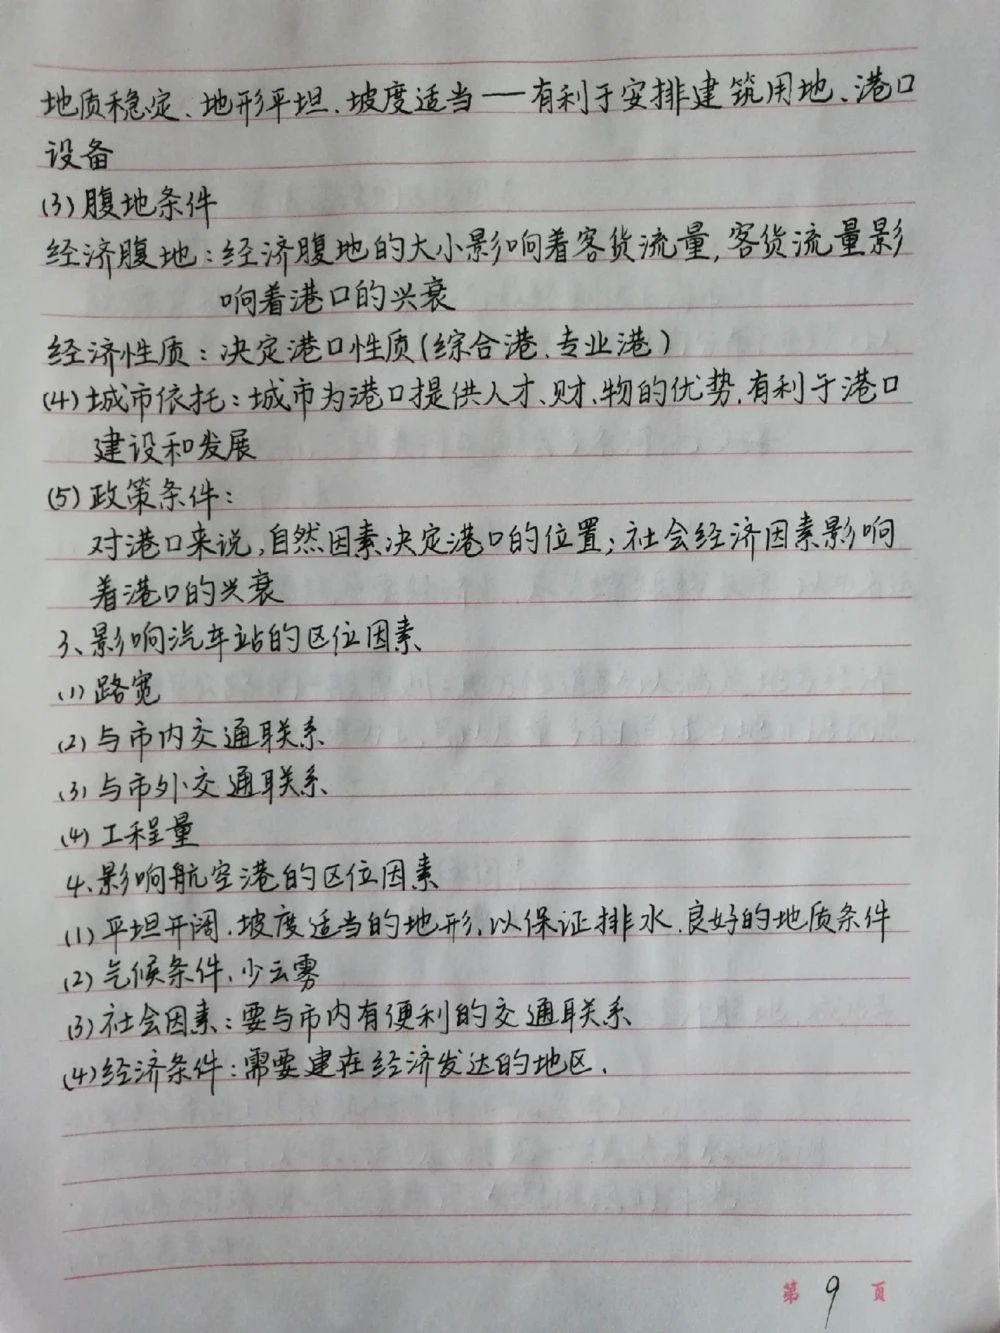 地质稳定、地形平坦、坡度适当——有利于安排建筑用地、港口
设备
(3)腹地条件
经济腹地：经济腹地的大小影响着客货流量，客货流量影
响着港口的兴衰
经济性质：决定港口性质(综合港、专业港)
(4)城市依托：城市为港口提供人才、财、物的优势，有利于港口
建设和发展
(5)政策条件：
对港口来说，自然因素决定港口的位置；社会经济因素影响
着港口的兴衰
3、影响汽车站的区位因素
(1)路宽
(2)与市内交通联系
(3)与市外交通联系
(4)工程量
4、影响航空港的区位因素
(1)平坦开阔、坡度适当的地形，以保证排水、良好的地质条件
(2)气候条件、少云雾
(3)社会因素：要与市内有便利的交通联系
(4)经济条件：需要建在经济发达的地区.
第 9 页